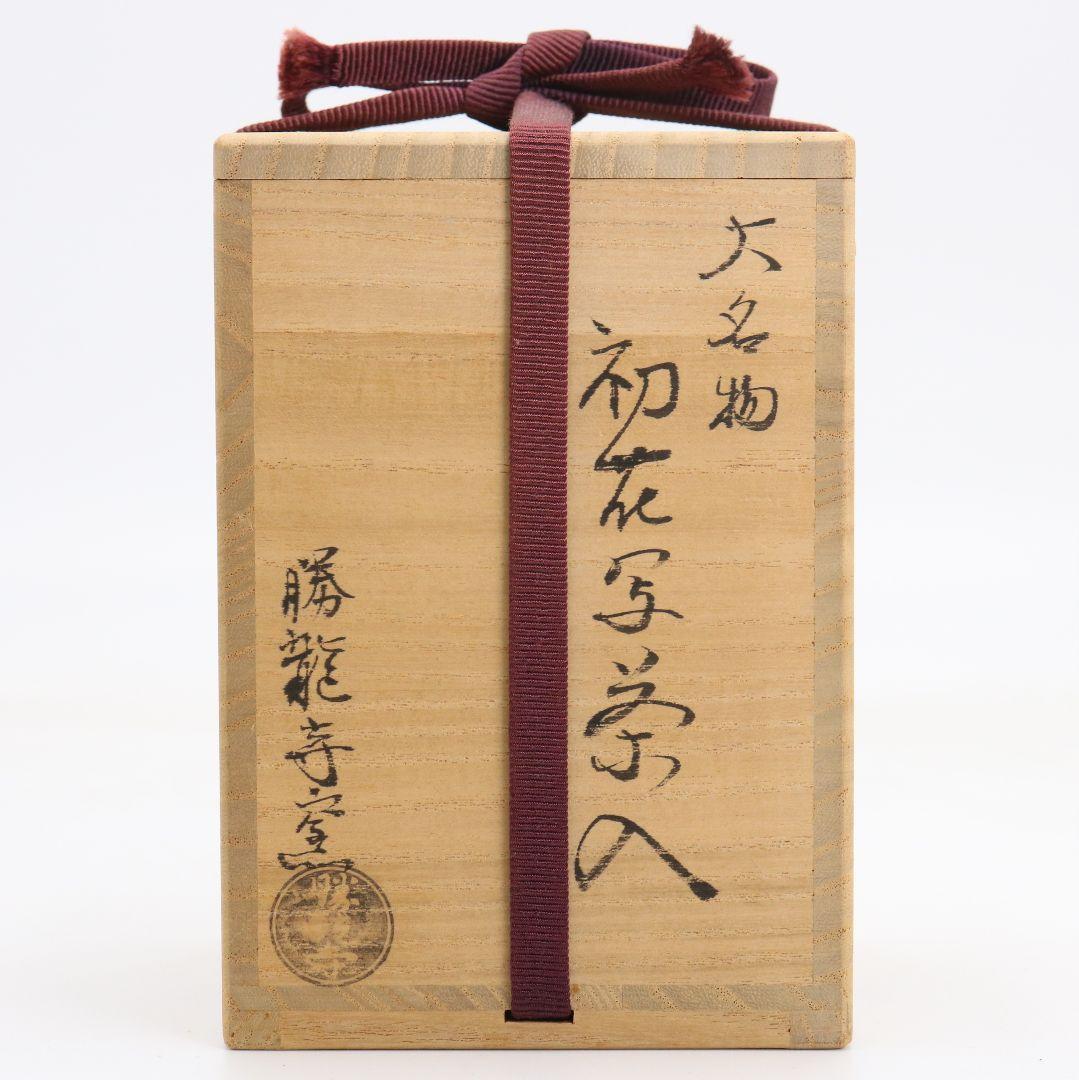 大名物
初花写茶入
勝龍寺窯